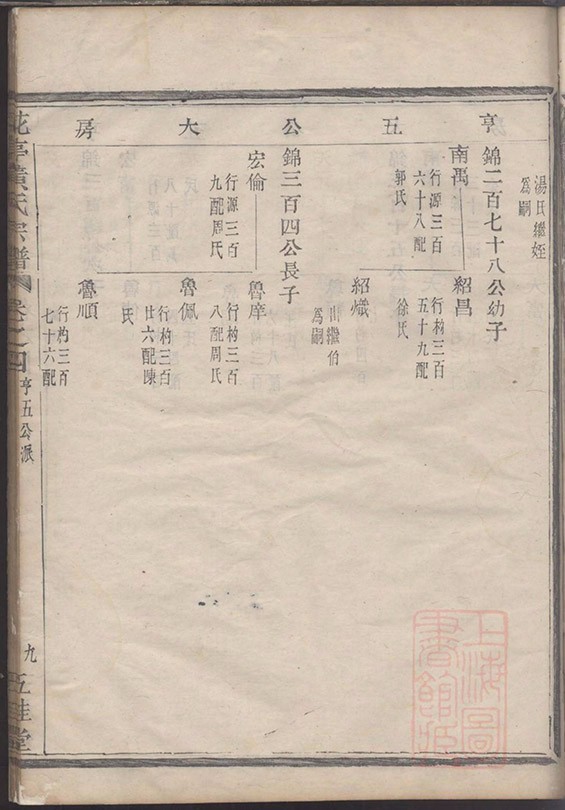 亨五公大房
湯氏繼姪
爲嗣
錦二百七十八公幼子
南禹
行源三百
六十八配
郭氏
紹昌
行杓三百
五十九配
徐氏
紹熾
出繼伯
爲嗣
錦三百四公長子
宏倫
行源三百
九配周氏
魯庠
行杓三百
八配周氏
魯佩
行杓三百
廿六配陳
氏
魯順
行杓三百
七十六配
花亭黃氏宗譜
卷之四
亨五公派
九
五桂堂
上海圖書館藏